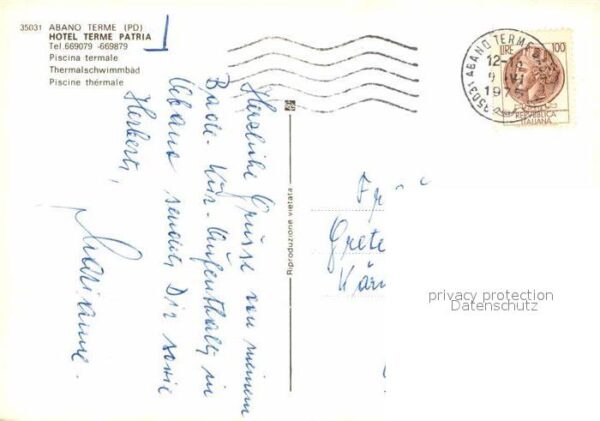 35031 ABANO TERME (PD)
HOTEL TERME PATRIA
Tel. 669079 -669879
Piscina termale
Thermalschwimmbad
Piscine thérmale
Herzliche Grüsse von meinem
Bade-Kur-Aufenthalt in
Abano sendet Dir sowie
Herbert,
Marianne.
Riproduzione vietata
35031 ABANO TERME
12-
9
197
LIRE 100
REPUBBLICA
ITALIANA
Fr
Grete
Kärn
privacy protection
Datenschutz